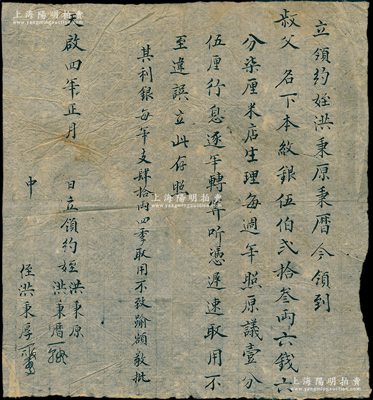 立領約姪洪秉原秉曆今領到
叔父 名下本紋銀伍伯弍拾叁両六錢六
分柒厘米店生理每週年照原議壹分
伍厘行息逐年轉筭听憑遲速取用不
至違誤立此存照
其利銀每年支肆拾両四季取用不致踰額敎批
啟四年正月 日立領約姪洪秉原
洪秉曆
中 侄洪秉
上海陽明拍賣
www.shymauction.com